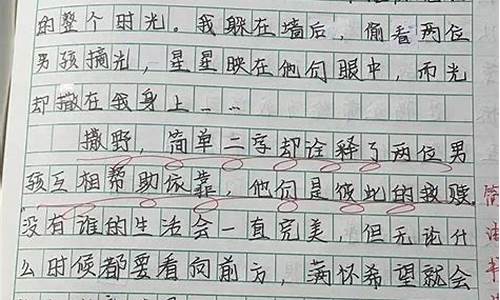 的整个时光。我躲在墙后，偷看两位
男孩摘光，星星映在他们眼中，而光
却撒在我身上……
撒野，简单二字却诠释了两位男
孩互相帮助依靠，他们是彼此的救赎.
没有谁的生活会一直完美，但无论什
么时候都要看向前方，满怀希望就会